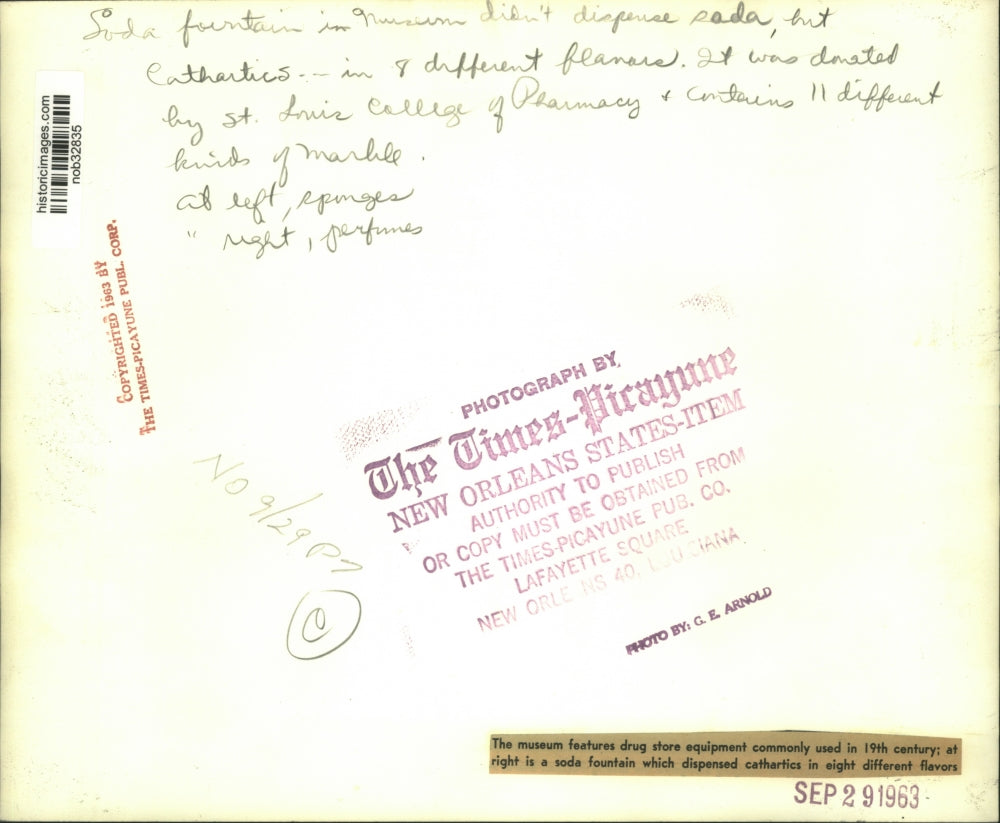 Soda fountain in Museum didn't dispense soda, but
Cathartics -- in 8 different flavors. It was donated
by St. Louis College of Pharmacy + contains 11 different
kinds of marble.
at left, sponges
" right, perfumes
historicimages.com
nob32835
COPYRIGHTED 1963 BY
THE TIMES-PICAYUNE PUBL. CORP.
PHOTOGRAPH BY
The Times-Picayune
NEW ORLEANS STATES-ITEM
AUTHORITY TO PUBLISH
OR COPY MUST BE OBTAINED FROM
THE TIMES-PICAYUNE PUB. CO.
LAFAYETTE SQUARE
NEW ORLE NS 40, LOUISIANA
NO 9/29
C
PHOTO BY: G. E. ARNOLD
The museum features drug store equipment commonly used in 19th century; at
right is a soda fountain which dispensed cathartics in eight different flavors
SEP 29 1963